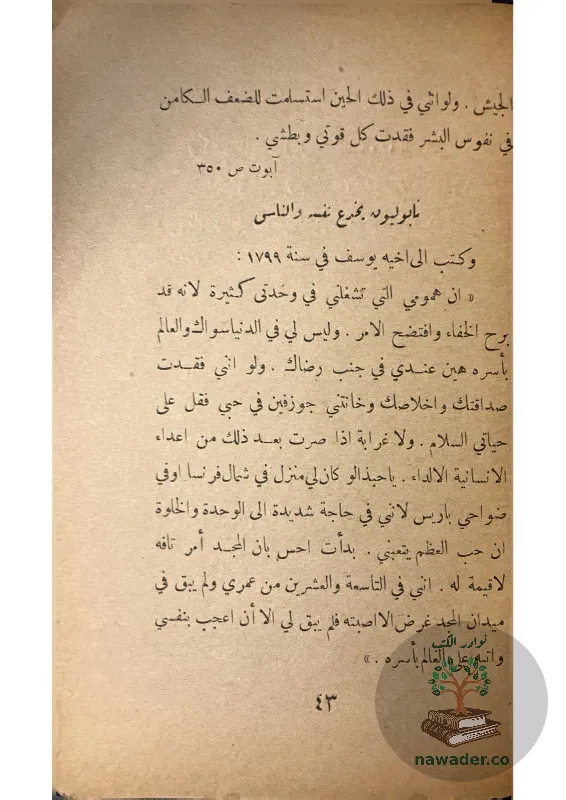 الجيش . ولو انني في ذلك الحين استسلمت للضعف الكامن
في نفوس البشر فقدت كل قوتي وبطشي .
آبوت ص ٣٥٠
نابوليون يخدع نفسه والناس
وكتب الى اخيه يوسف في سنة ١٧٩٩ :
« ان همومي التي تشغلني في وحدتي كثيرة لانه قد
برح الخفاء وافتضح الامر . وليس لي في الدنيا سواك والعالم
بأسره هين عندي في جنب رضاك . ولو انني فقدت
صداقتك واخلاصك وخانتني جوزفين في حبي فقل على
حياتي السلام . ولا غرابة اذا صرت بعد ذلك من اعداء
الانسانية الالداء . ياحبذا لو كان لي منزل في شمال فرنسا او في
ضواحي باريس لانني في حاجة شديدة الى الوحدة والخلوة
ان حب العظم يتعبني . بدأت احس بان المجد أمر تافه
لاقيمة له . انني في التاسعة والعشرين من عمري ولم يبق في
ميدان المجد غرض الا اصبته فلم يبق لي الا أن اعجب بنفسي
واتيه على العالم بأسره . »
٤٣
نوادر الكتب
nawader.co